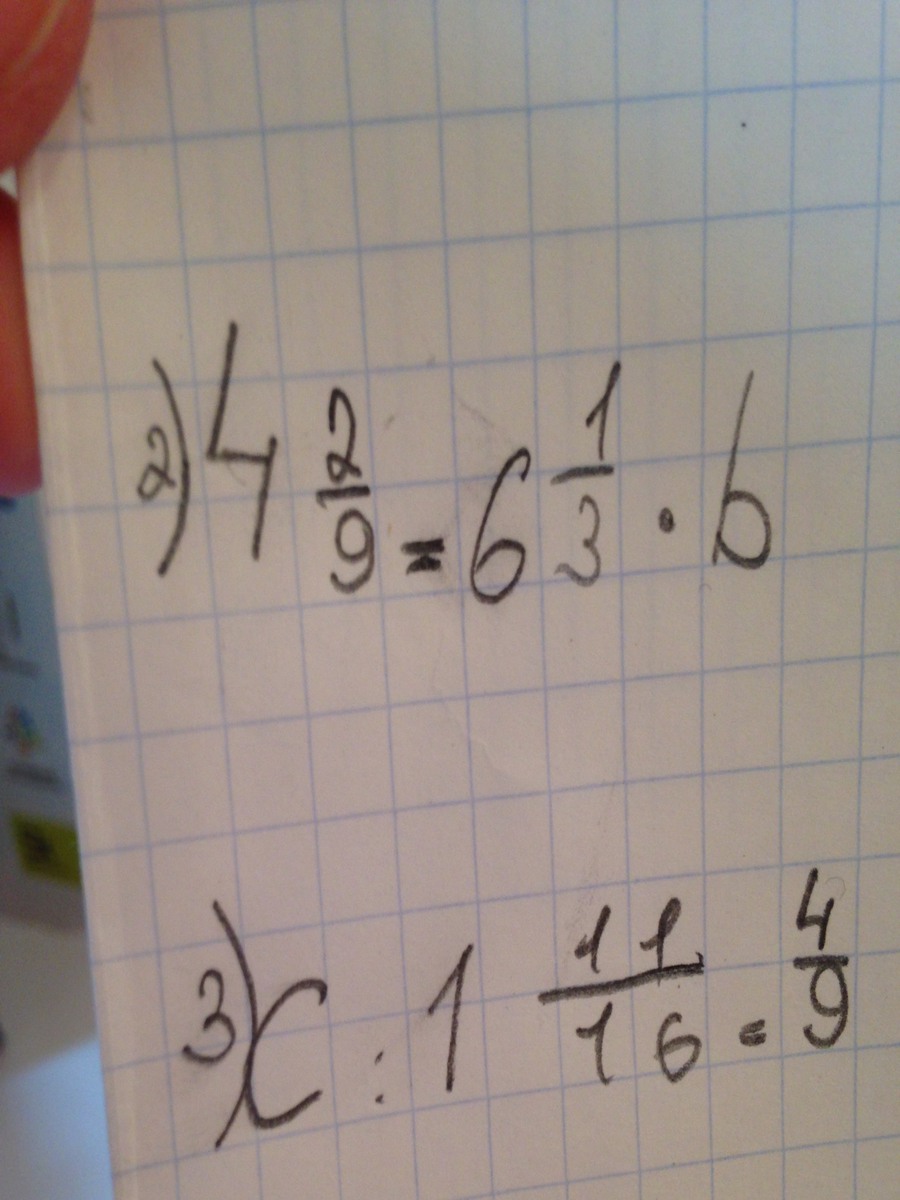 2) 4 2/9 = 6 1/3 · b
3) c : 1 11/16 = 4/9